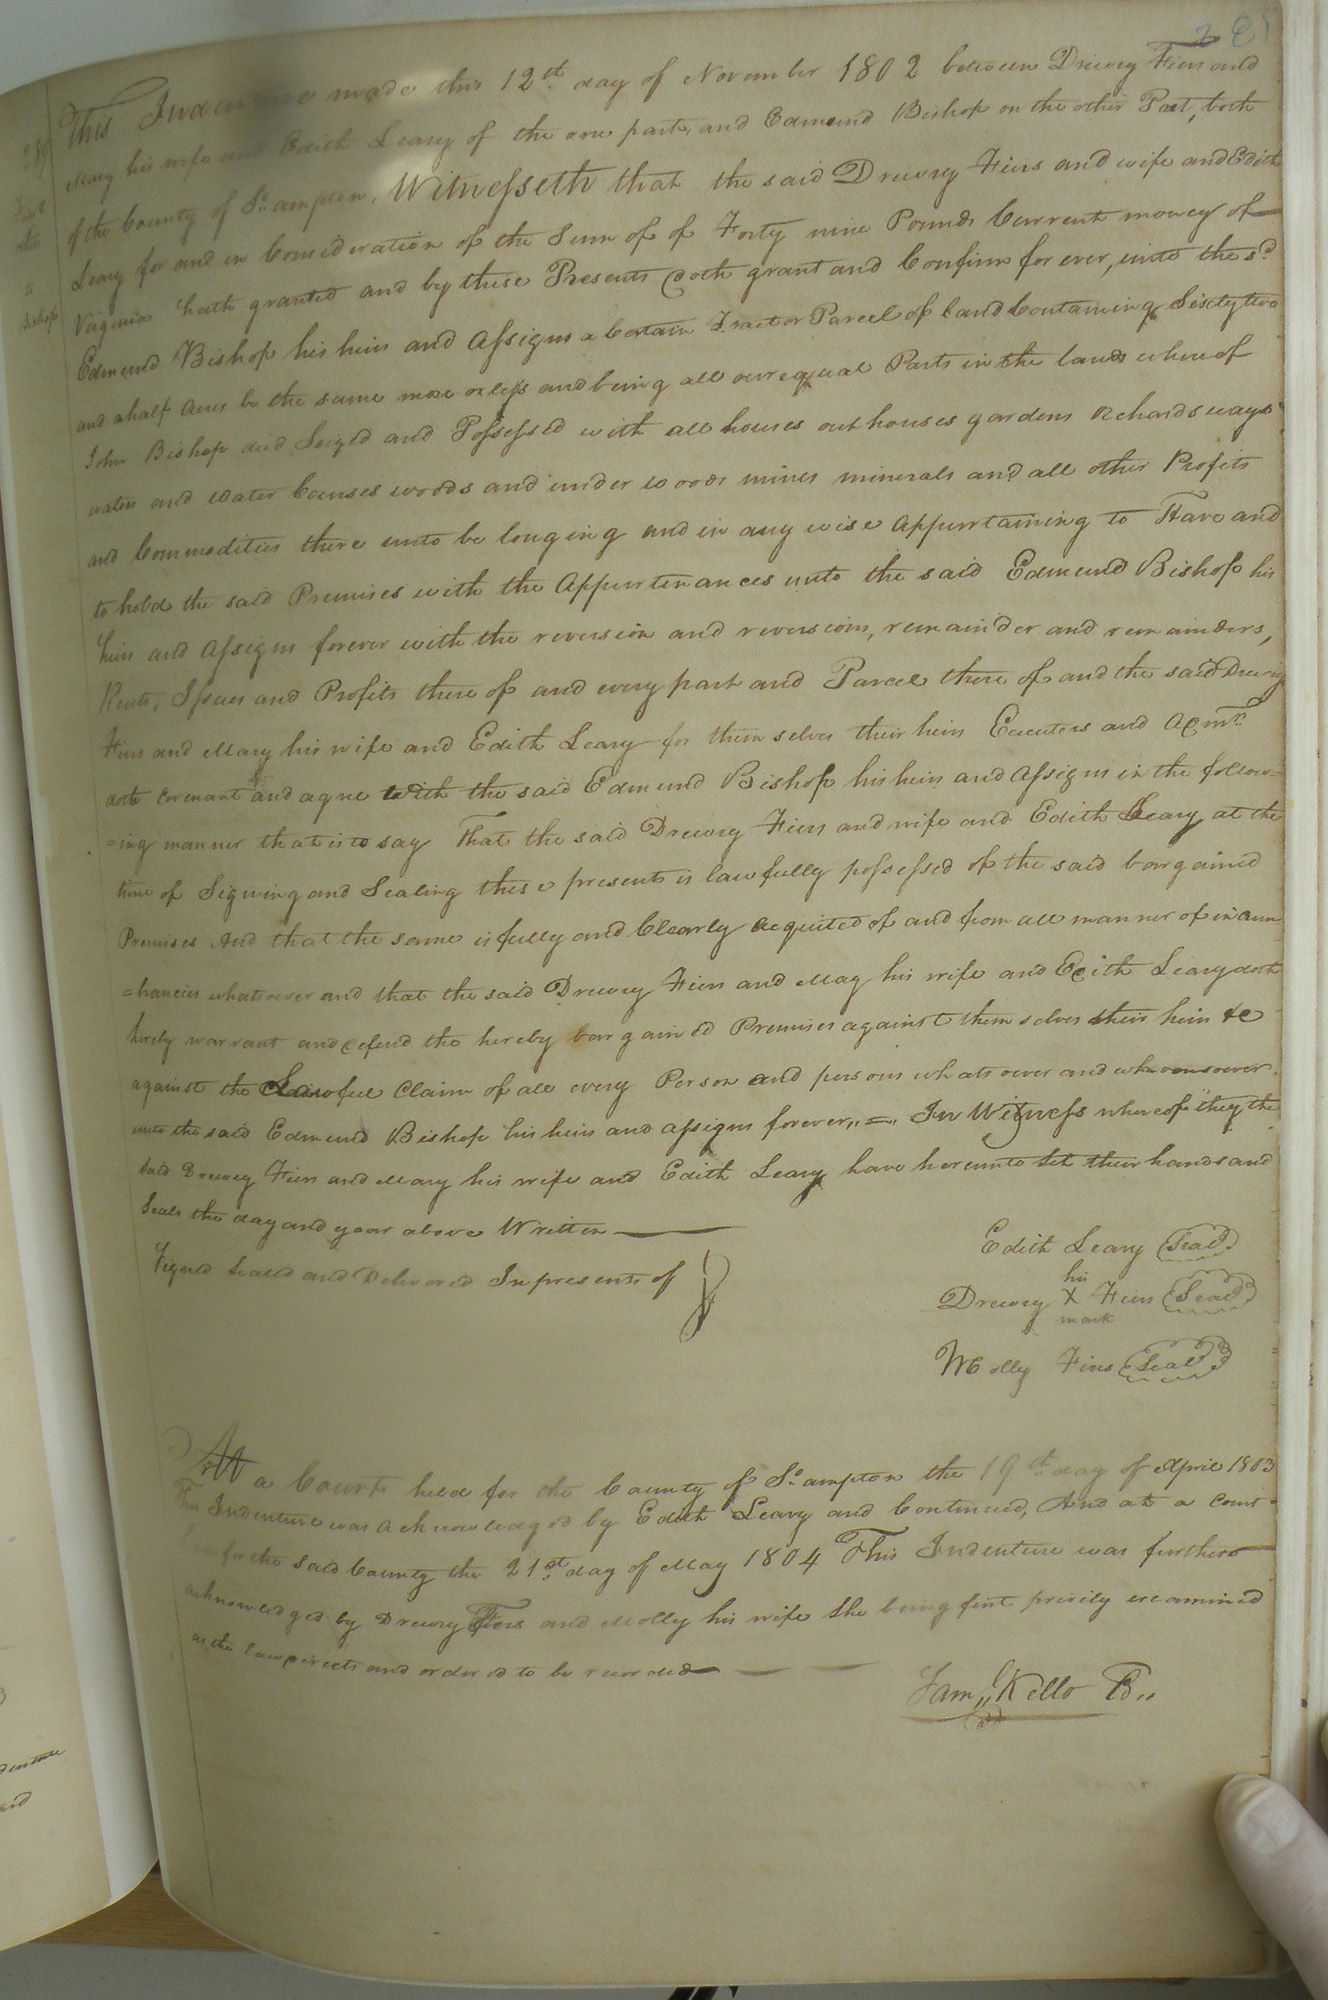 This Indenture made this 12th. day of November 1802 between Drewry Fiers and
Mary his wife and Edith Leary of the one part, and Edmund Bishop on the other Part, both
of the County of So. ampton, Witnesseth that the said Drewry Fiers and wife and Edith
Leary for and in Consideration of the Sum of of Forty nine Pounds Current money of
Virginia hath granted and by these Presents doth grant and Confirm for ever, unto the sd.
Edmund Bishop his heirs and Assigns a Certain Tract or Parcel of Land Containing Sixty two
and a half Acres be the same more or less and being all our equal Parts in the lands where of
John Bishop died Seized and Possessed with all houses out houses gardens Orchards ways
waters and water Courses woods and under woods mines minerals and all other Profits
and Commodities there unto be longing and in any wise Appurtaining to Have and
to hold the said Premises with the Appurtenances unto the said Edmund Bishop his
heirs and Assigns forever with the reversion and reversions, remainder and remainders,
Rents, Issues and Profits there of and every part and Parcel there of and the said Drewry
Fiers and Mary his wife and Edith Leary for them selves their heirs Executors and Admrs.
doth Covenant and agree with the said Edmund Bishop his heirs and Assigns in the follow=
=ing manner that is to say That the said Drewry Fiers and wife and Edith Leary at the
time of Signing and Sealing these presents is lawfully possessed of the said bargained
Premises And that the same is fully and Clearly acquited of and from all manner of incum
=brances whatsoever and that the said Drewry Fiers and Mary his wife and Edith Leary doth
hereby warrant and defend the hereby bargained Premises against them selves their heirs &c
against the Lawful Claim of all every Person and persons whatsoever and whomsoever
unto the said Edmund Bishop his heirs and assigns forever,, =,, In Witness whereof they the
said Drewry Fiers and Mary his wife and Edith Leary have hereunto Set their hands and
Seals the day and year above Written
Signed Sealed and Delivered In presents of
Edith Leary (Seal)
his
Drewry X Fiers (Seal)
mark
Molly Fiers (Seal)
At a Court held for the County of So. ampton the 19th. day of April 1803
This Indenture was acknowledged by Edith Leary and Continued, And at a Court
for the said County the 21st. day of May 1804 This Indenture was further
acknowledged by Drewry Fiers and Molly his wife She being first privily examined
as the law directs and ordered to be recorded
Saml,, Kello
Bishop